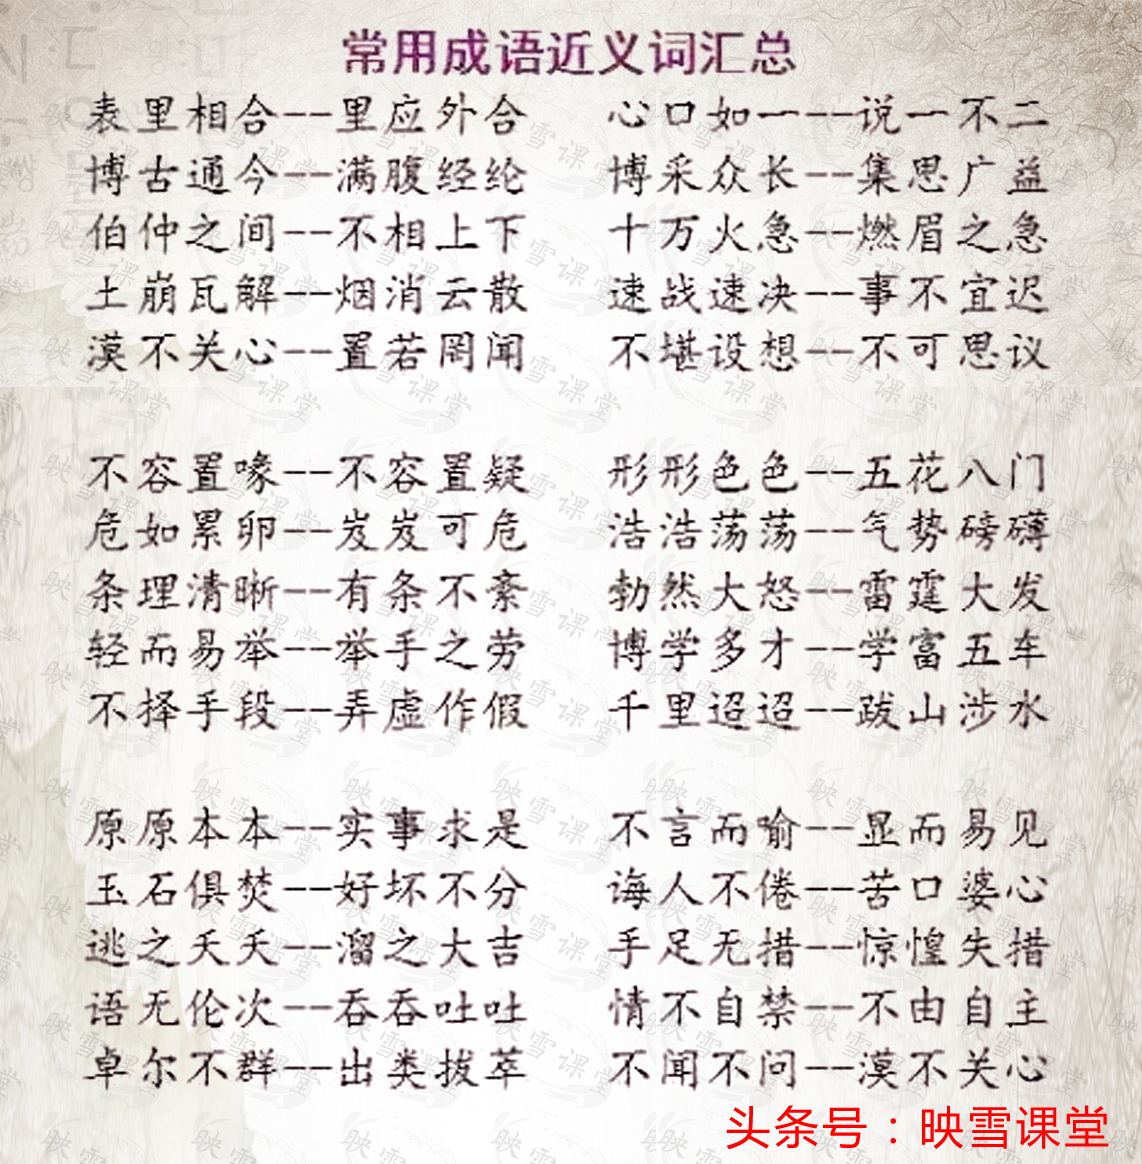 常用成语近义词汇总
表里相合--里应外合 心口如一--说一不二
博古通今--满腹经纶 博采众长--集思广益
伯仲之间--不相上下 十万火急--燃眉之急
土崩瓦解--烟消云散 速战速决--事不宜迟
漠不关心--置若罔闻 不堪设想--不可思议
不容置喙--不容置疑 形形色色--五花八门
危如累卵--岌岌可危 浩浩荡荡--气势磅礴
条理清晰--有条不紊 勃然大怒--雷霆大发
轻而易举--举手之劳 博学多才--学富五车
不择手段--弄虚作假 千里迢迢--跋山涉水
原原本本--实事求是 不言而喻--显而易见
玉石俱焚--好坏不分 诲人不倦--苦口婆心
逃之夭夭--溜之大吉 手足无措--惊惶失措
语无伦次--吞吞吐吐 情不自禁--不由自主
卓尔不群--出类拔萃 不闻不问--漠不关心
头条号：映雪课堂